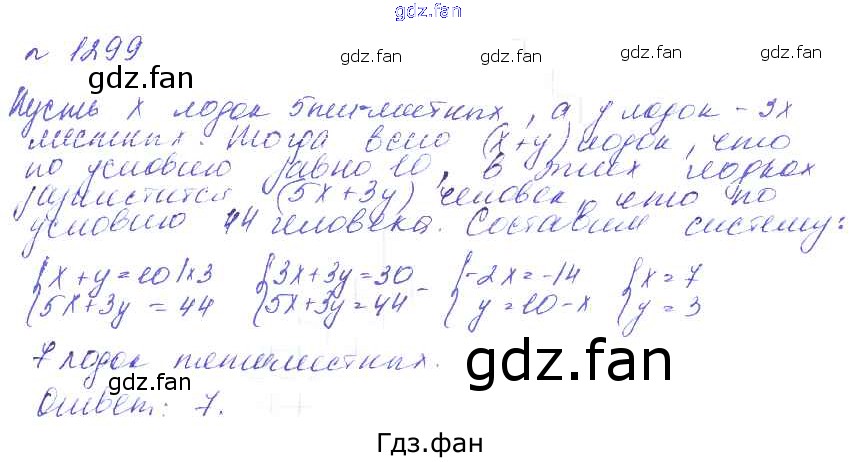 gdz.fan
№ 1299
gdz.fan
gdz.fan
gdz.fan
Пусть x лодок 5пи-местных, а y лодок - 3х
местных. Тогда всего (x+y) лодок, что
по условию равно 10, в этих лодках
разместится (5x+3y) человек, что по
условию 44 человека. Составим систему:
{x+y=10|x3 {3x+3y=30 - {-2x=-14 {x=7
{5x+3y=44 {5x+3y=44 {y=10-x {y=3
7 лодок пятиместных.
gdz.fan
gdz.fan
Ответ: 7.
Гдз.фан